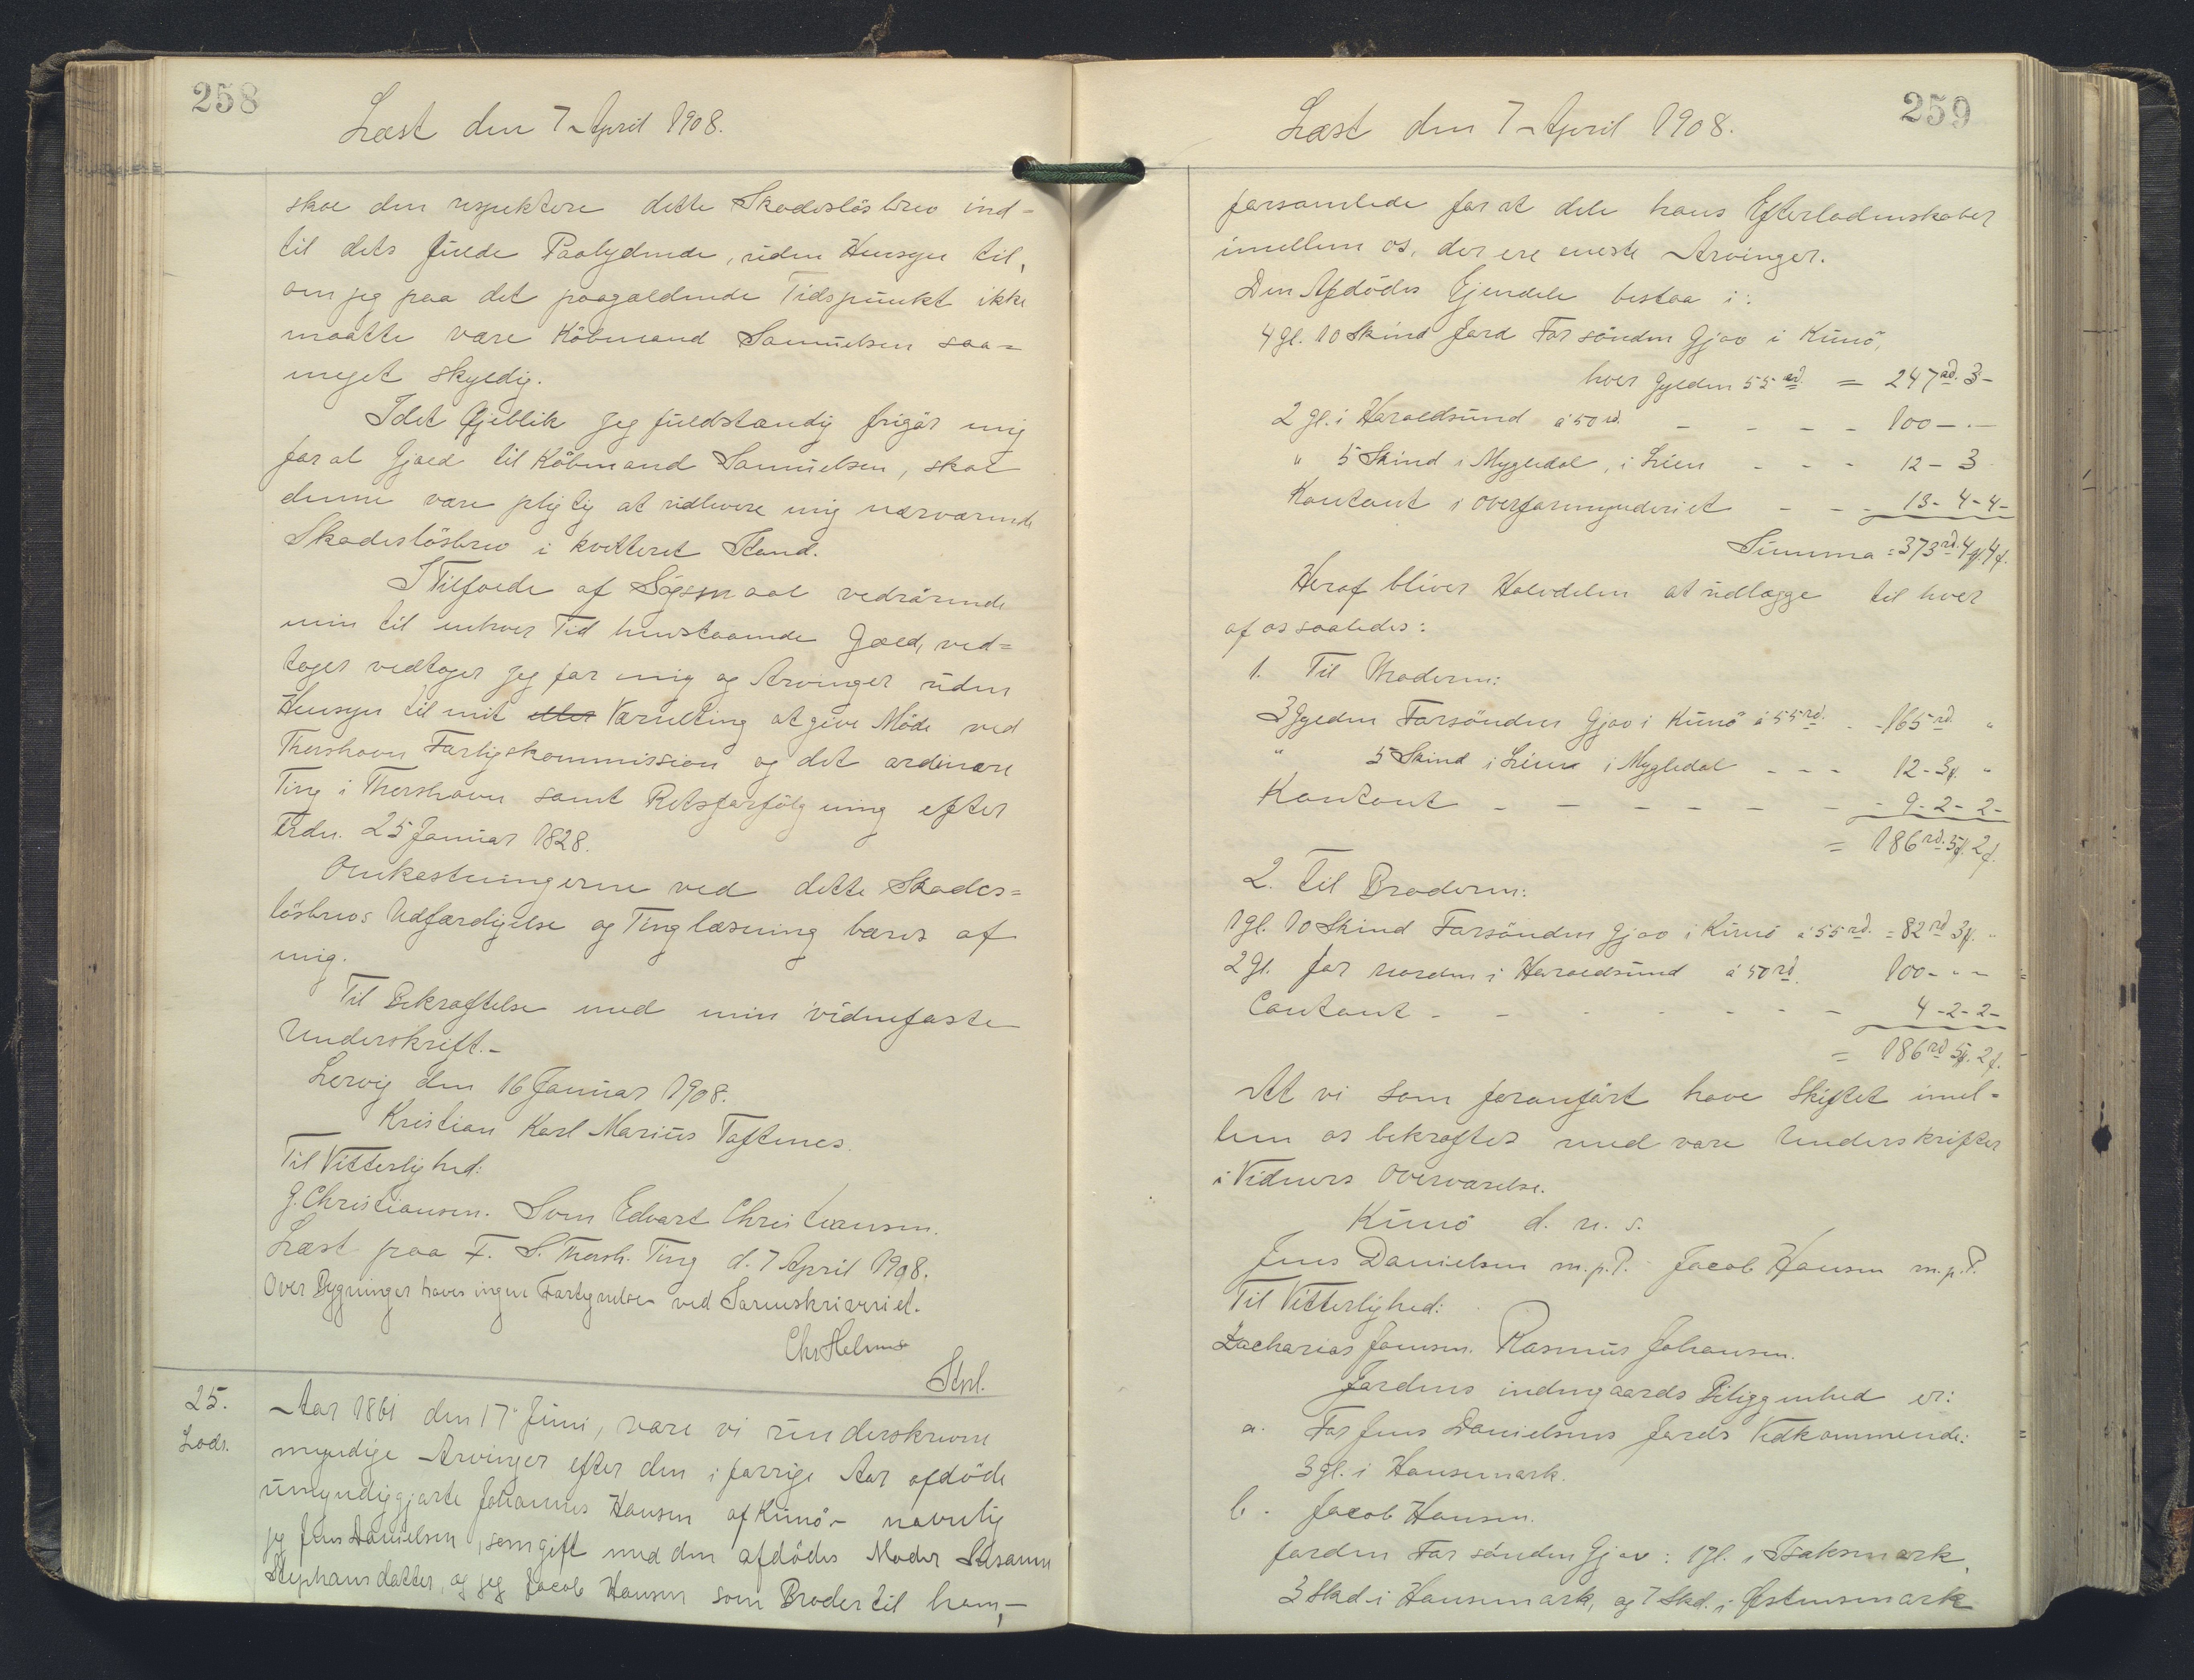 258
Læst den 7 April 1908.
skal den respektere dette Skadesløsbrev ind-
til dets fulde Paalydende, uden Hensyn til,
om jeg paa det paagældende Tidspunkt ikke
maatte være Købmand Samuelsen saa=
meget skyldig.
Idet Øjeblik jeg fuldstændig frigør mig
for al Gjæld til Købmand Samuelsen, skal
denne være pligtig at udlevere mig nærværende
Skadesløsbrev i kvitteret Stand.
I Tilfælde af Søgsmaal vedrørende
min til enhver Tid henstaaende Gæld, ved=
tager vedtager jeg for mig og Arvinger uden
Hensyn til mit eller Værneting at give Møde ved
Thorshavn Forligskommission og det ordinære
Ting i Thorshavn samt Retsforfølgning efter
Frdn. 25 Januar 1828.
Omkostningerne ved dette Skades=
løsbrevs Udfærdigelse og Tinglæsning bæres af
mig.
Til Bekræftelse med min vidnefaste
Underskrift.-
Lervig den 16 Januar 1908.
Kristian Karl Marius Toftenes.
Til Vitterlighed:
G. Christiansen. Sven Edvart Christiansen.
Læst paa F. S. Thorsh. Ting d. 7 April 1908.
Over Bygninger haves ingen Fortegnelse ved Sorenskriveriet.
Chr Helms
Stpl.
25.
Lods.
Aar 1861 den 17 Juni, vare vi underskrevne
myndige Arvinger efter den i forrige Aar afdøde
umyndiggjorte Johannes Hansen af Kunø - navnlig
jeg Jens Danielsen, som gift med den afdødes Moder Susanne
Stephansdatter, og jeg Jacob Hansen som Broder til ham,-
259
Læst den 7 April 1908.
forsamlede for at dele hans Efterladenskaber
imellem os, der ere eneste Arvinger.
Den Afdødes Ejendele bestaa i:
4 gl. 10 Skind Jord For sønden Gjov i Kunø,
hver Gylden 55 rd. = 247 rd. 3-
2 gl. i Haraldsund á 50 rd. - - - - 100 - . -
" 5 Skind i Mygledal, i Lien - - - 12 - 3
Kontant i Overformynderiet - - - 13- 4-4-
Summa = 373 rd. 4 . 4 .
Heraf bliver Halvdelen at udlægge til hver
af os saaledes:
1. Til Moderen:
3 Gylden Forsønden Gjov i Kunø á 55 rd. - - 165 rd. "
" 5 Skind i Lien i Mygledal - - - 12 - 3 . "
Kontant - - - - - - - 9-2-2-
= 186 rd. 5 . 2 .
2. Til Broderen:
1 gl. 10 Skind Forsønden Gjov i Kunø á 55 rd. = 82 rd 3 . "
2 gl. for norden i Haraldsund á 50 rd. 100 - - -
Contant - - - - - - - 4-2-2-
= 186 rd 5 . 2 .
At vi som foranført have skiftet imel-
lem os bekræftes med vore Underskrifter
i Vidners Overværelse.
Kunø d. u. s.
Jens Danielsen m.p.P. Jacob Hansen m.p.P.
Til Vitterlighed:
Zacharias Joensen. Rasmus Johansen.
Jordens indengaards Beliggenhed er:
a. For Jens Danielsens Jords Vedkommende:
3 gl. i Hansemark.
b. Jacob Hansen.
Jorden For sønden Gjov: 1 gl. i Isaksmark,
3 Skd. i Hansemark, og 7 Skd. i Østensmark